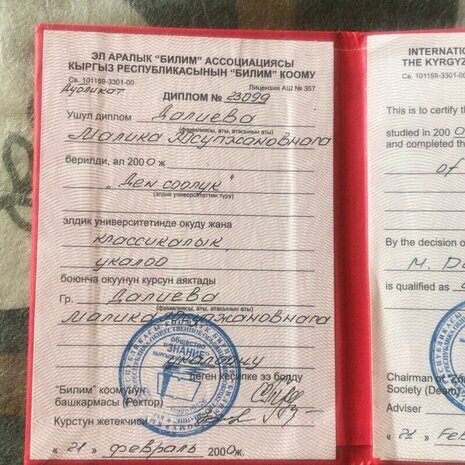 ЭЛ АРАЛЫК "БИЛИМ" АССОЦИАЦИЯСЫ
КЫРГЫЗ РЕСПУБЛИКАСЫНЫН "БИЛИМ" КООМУ
Св. 101159-3301-00
Лицензия АШ № 367
Дубликат
ДИПЛОМ № 23099
Ушул диплом Далиева
(фамилиясы, аты, атасынын аты)
Малика Юсупжановнага
берилди, ал 2000ж
"Ден соолук"
элдик университетинде окуду жана
классикалык
укалоо
боюнча окуунун курсун аяктады
Гр. Далиева
(фамилиясы, аты, атасынын аты)
Малика Юсупжановнага
общество
ЗНАНИЕ
деген кесипке ээ болду
"Билим" коомунун
башкармасы (Ректор)
Курстун жетекчиси
"21" февраль 2000ж.
INTERNATI
THE KYRGYZ
Св. 101159-3301-00
This is to certify th
studied in 200
and completed the
of
By the decision o
M. Da
is qualified as
Chairman of
Society (Dean)
Adviser
"21" Feb